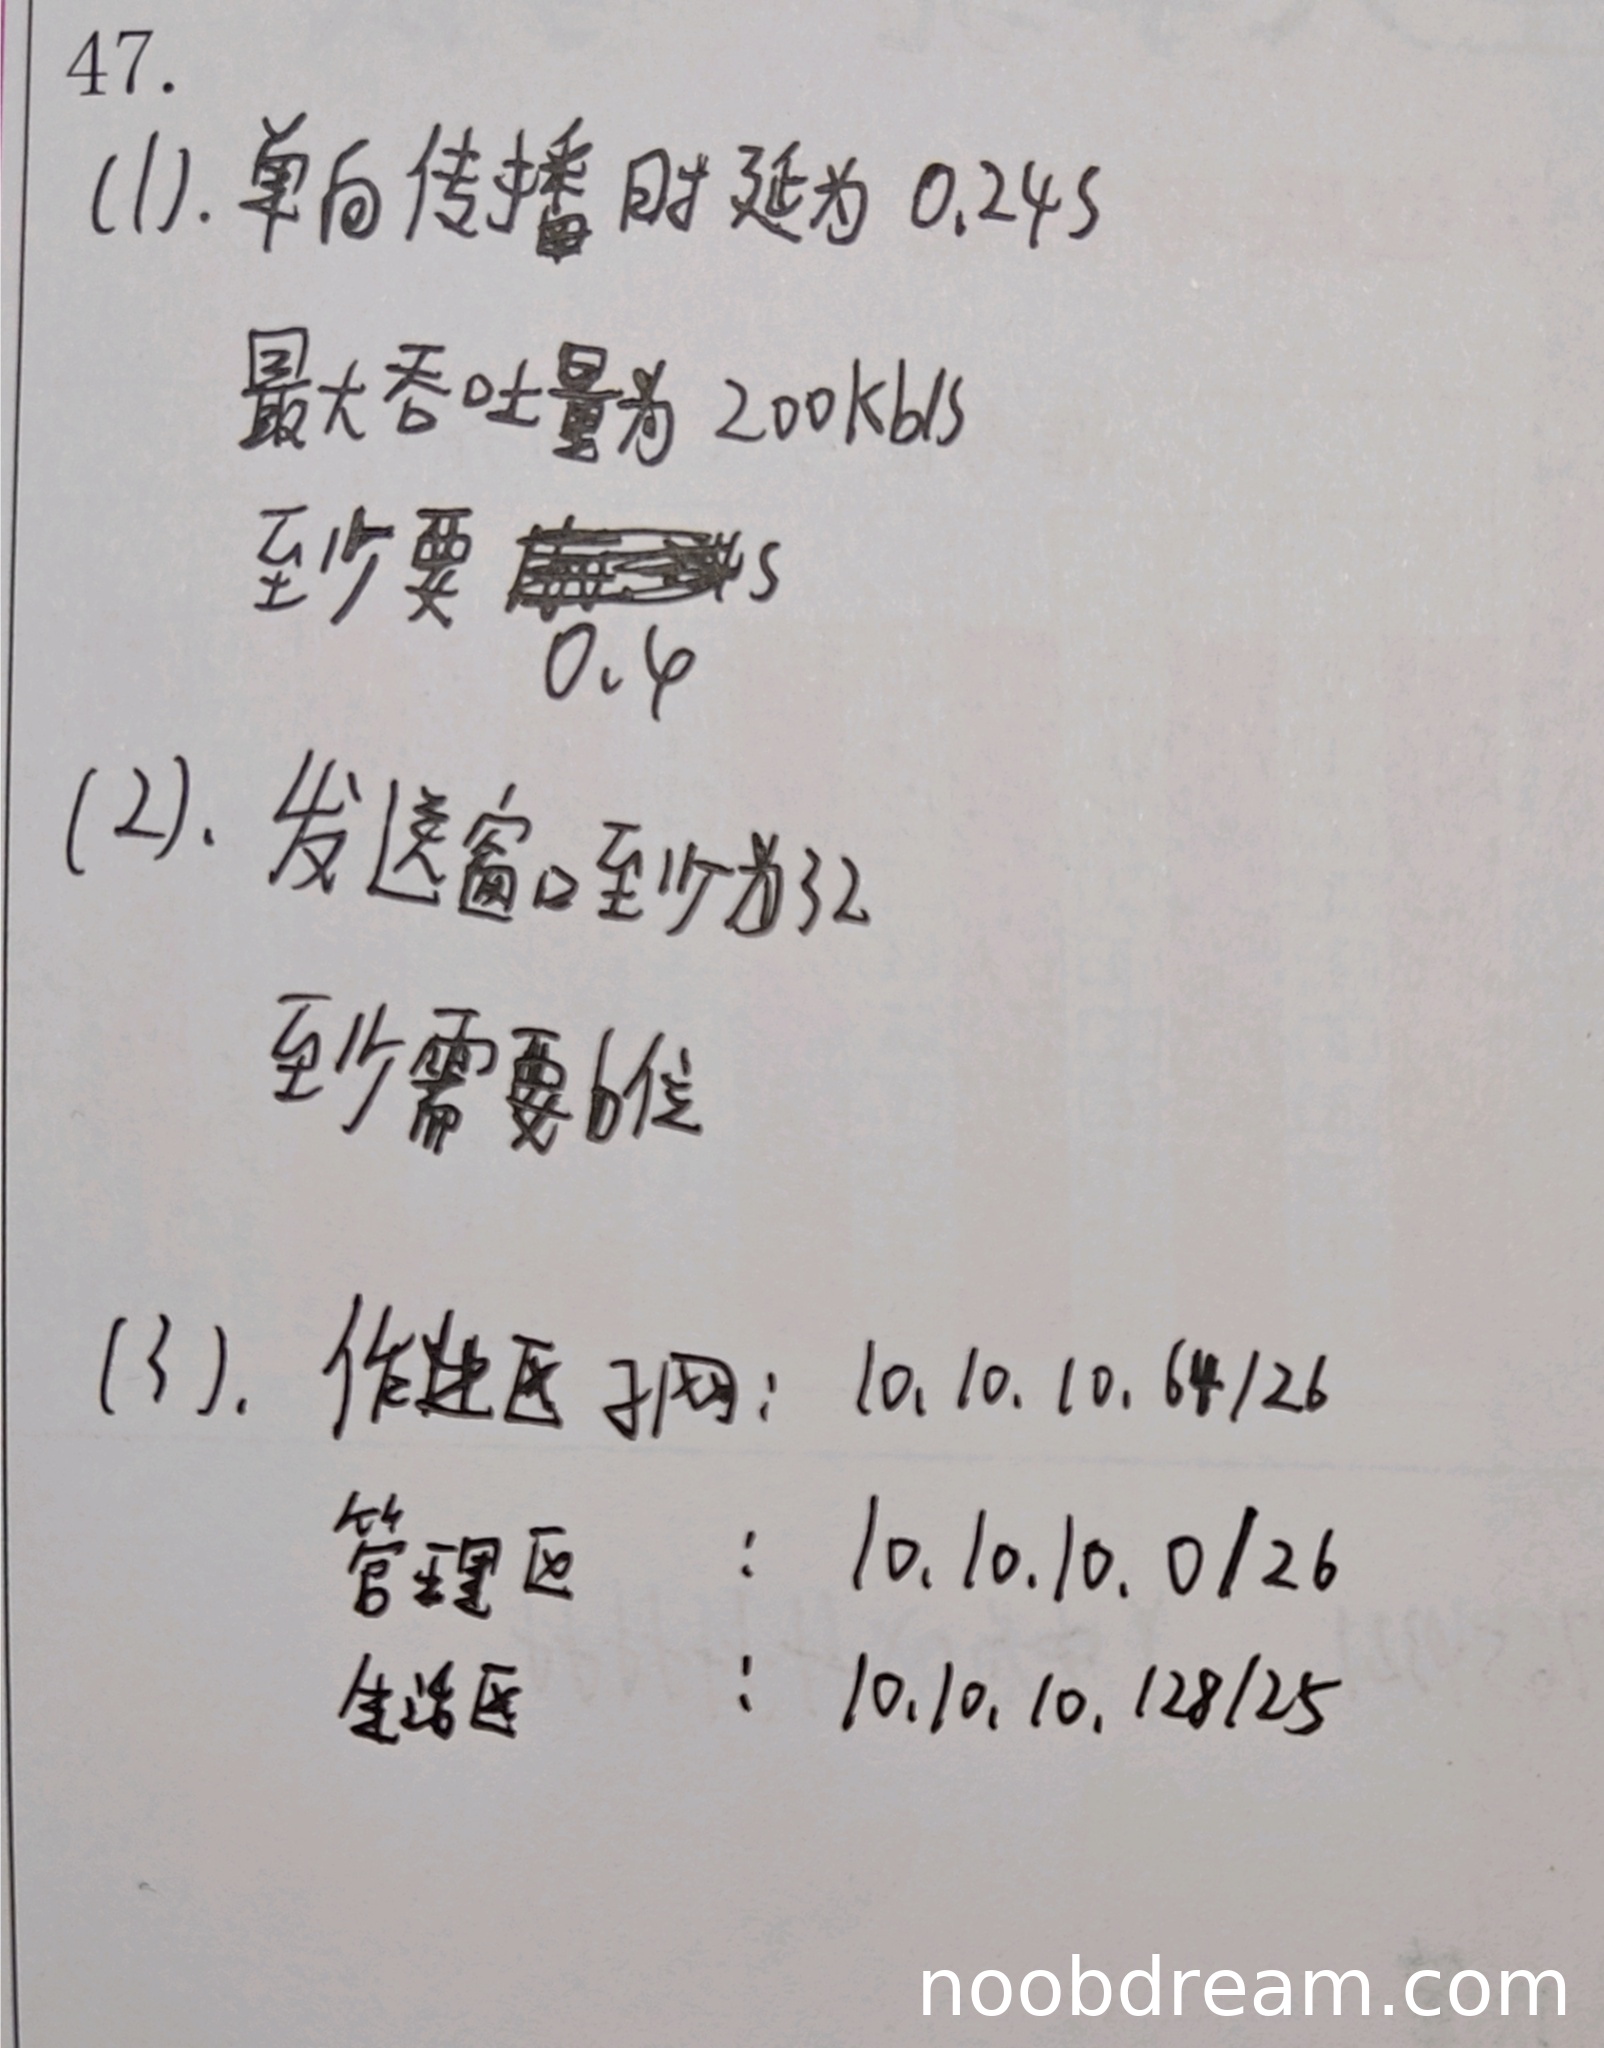 47.
(1). 单向传播时延为 0.24s
最大吞吐量为 200Kb/s
至少要 s
0.4
(2). 发送窗口至少为32
至少需要6位
(3). 作业区子网: 10.10.10.64/26
管理区 : 10.10.10.0/26
生活区 : 10.10.10.128/25
noobdream.com